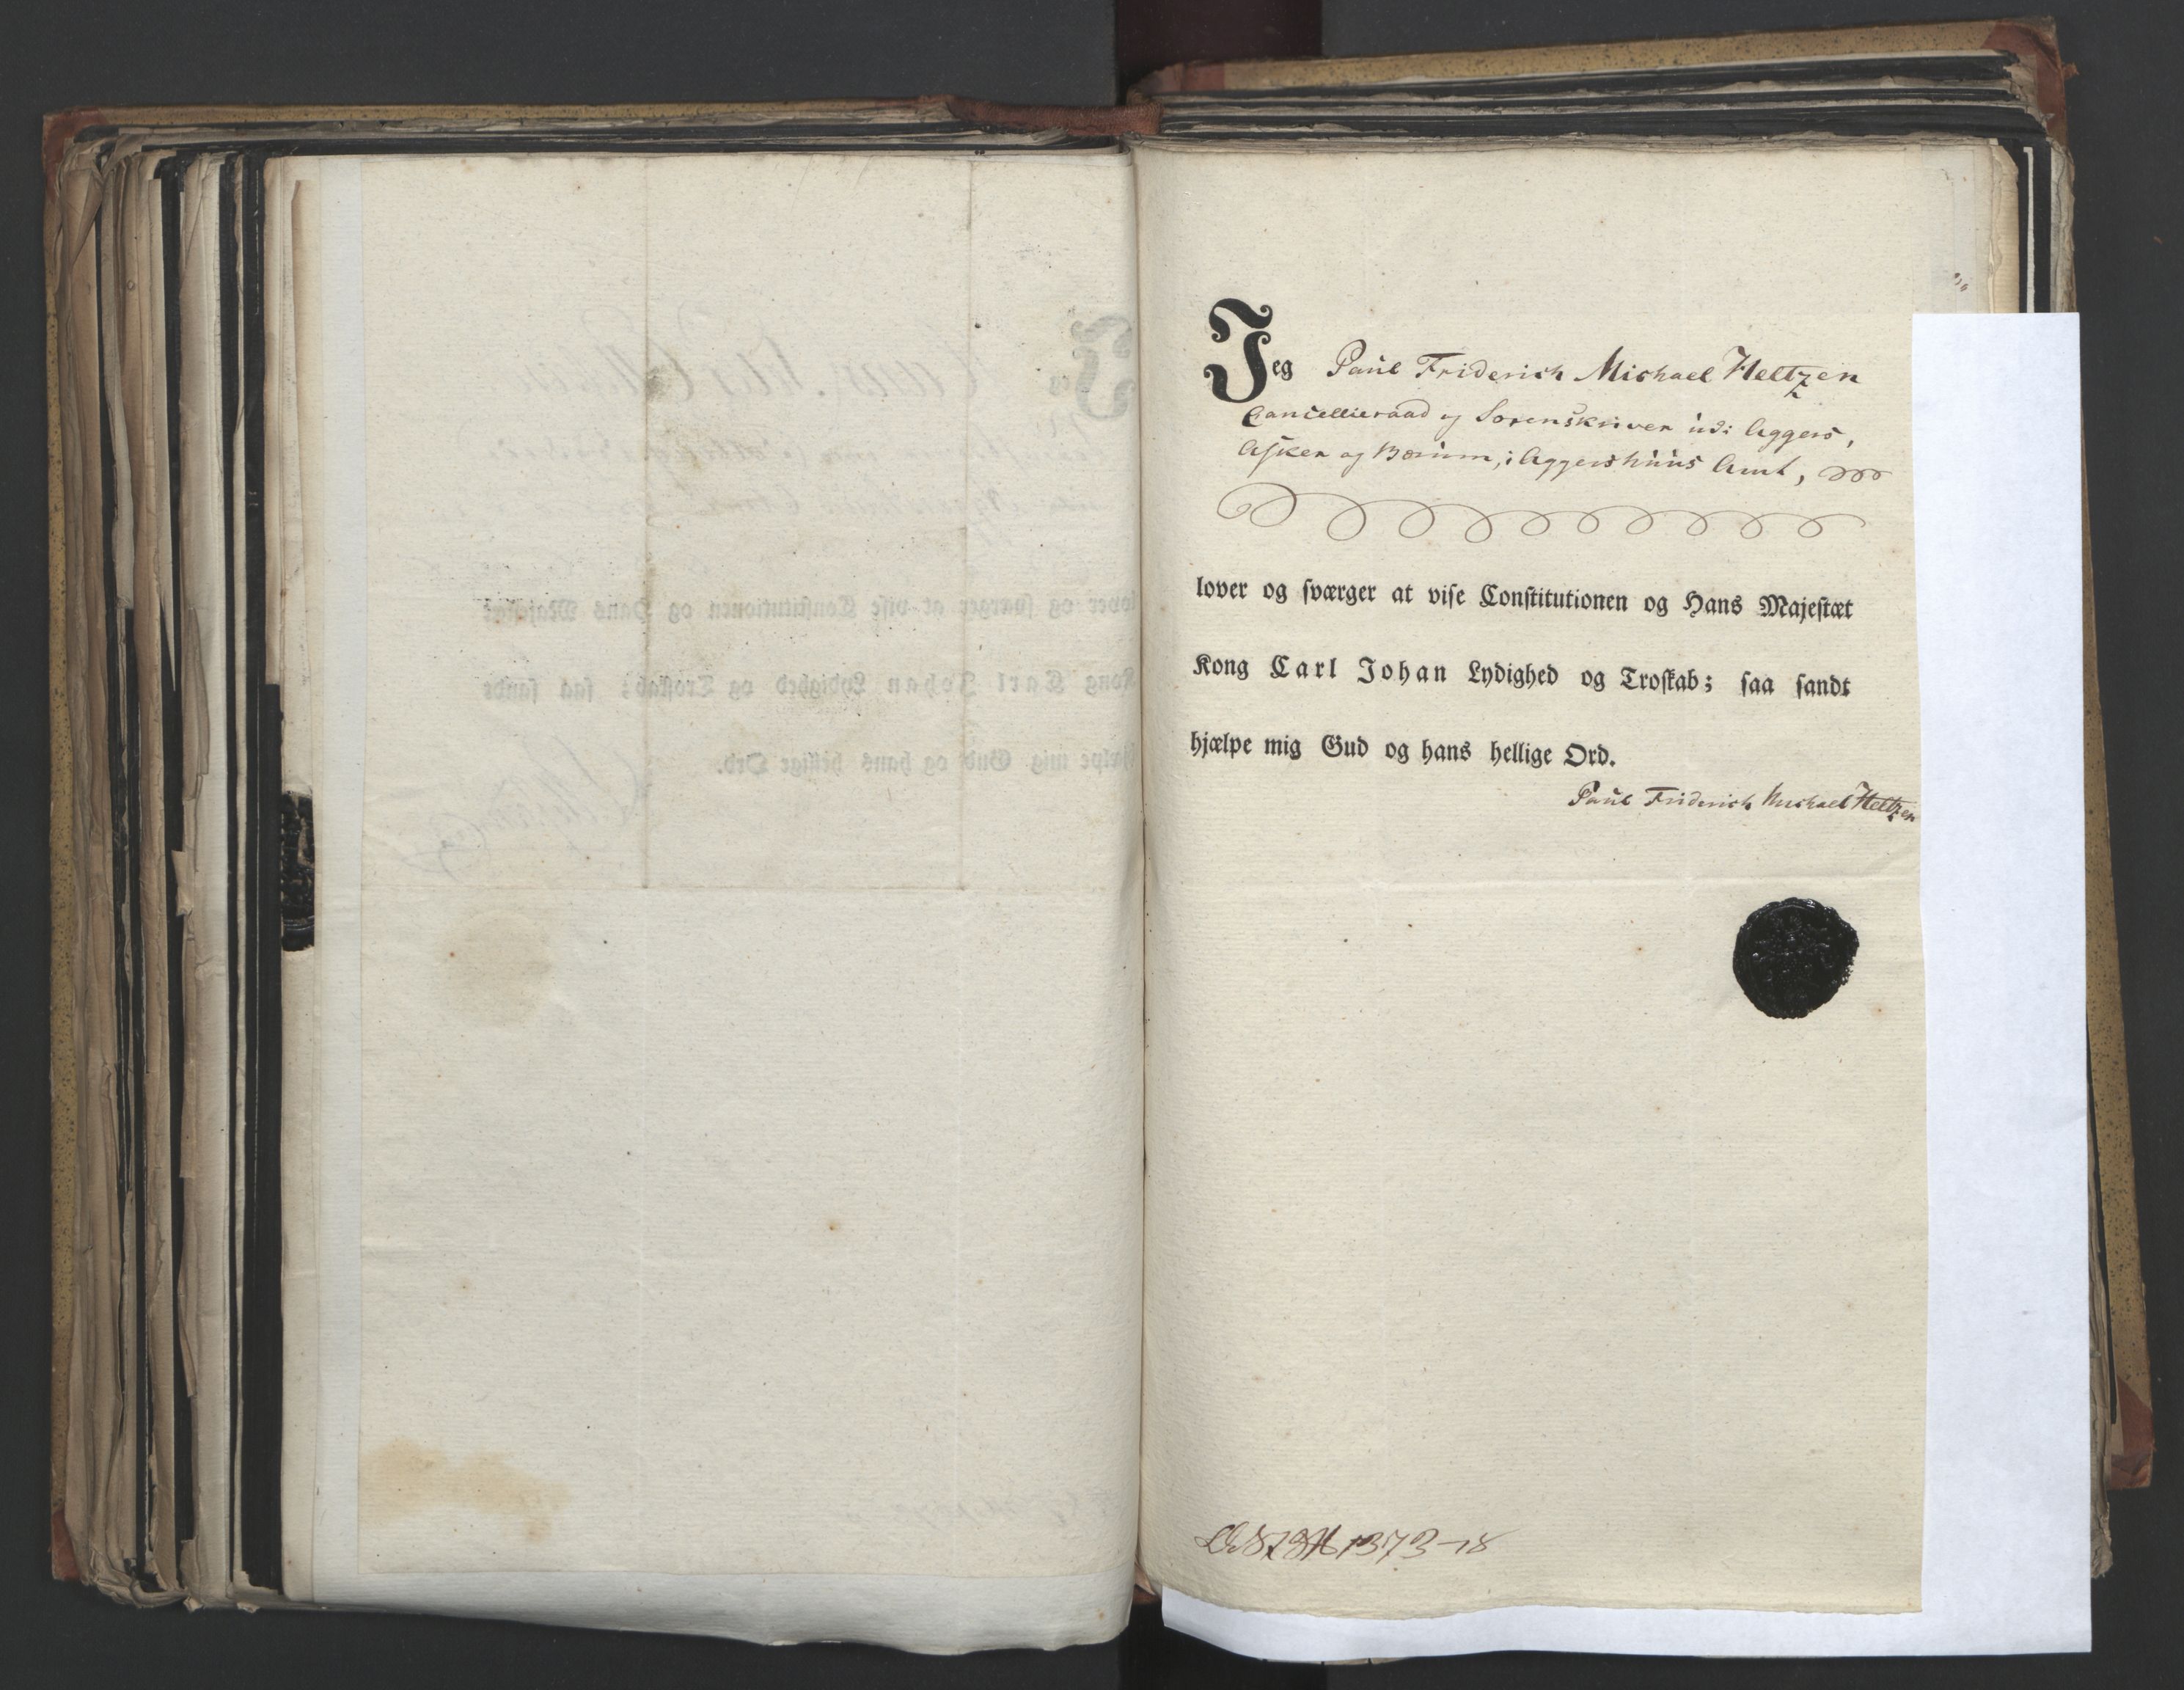 Jeg Paul Friderich Michael Heltzen
Cancellieraad og Sorenskriver udi Aggers,
Asker og Bærum, i Aggershuus Amt,
lover og sværger at vise Constitutionen og Hans Majestæt
Kong Carl Johan Lydighed og Troskab; saa sandt
hjælpe mig Gud og hans hellige Ord.
Paul Friderich Michael Heltzen
1373-18